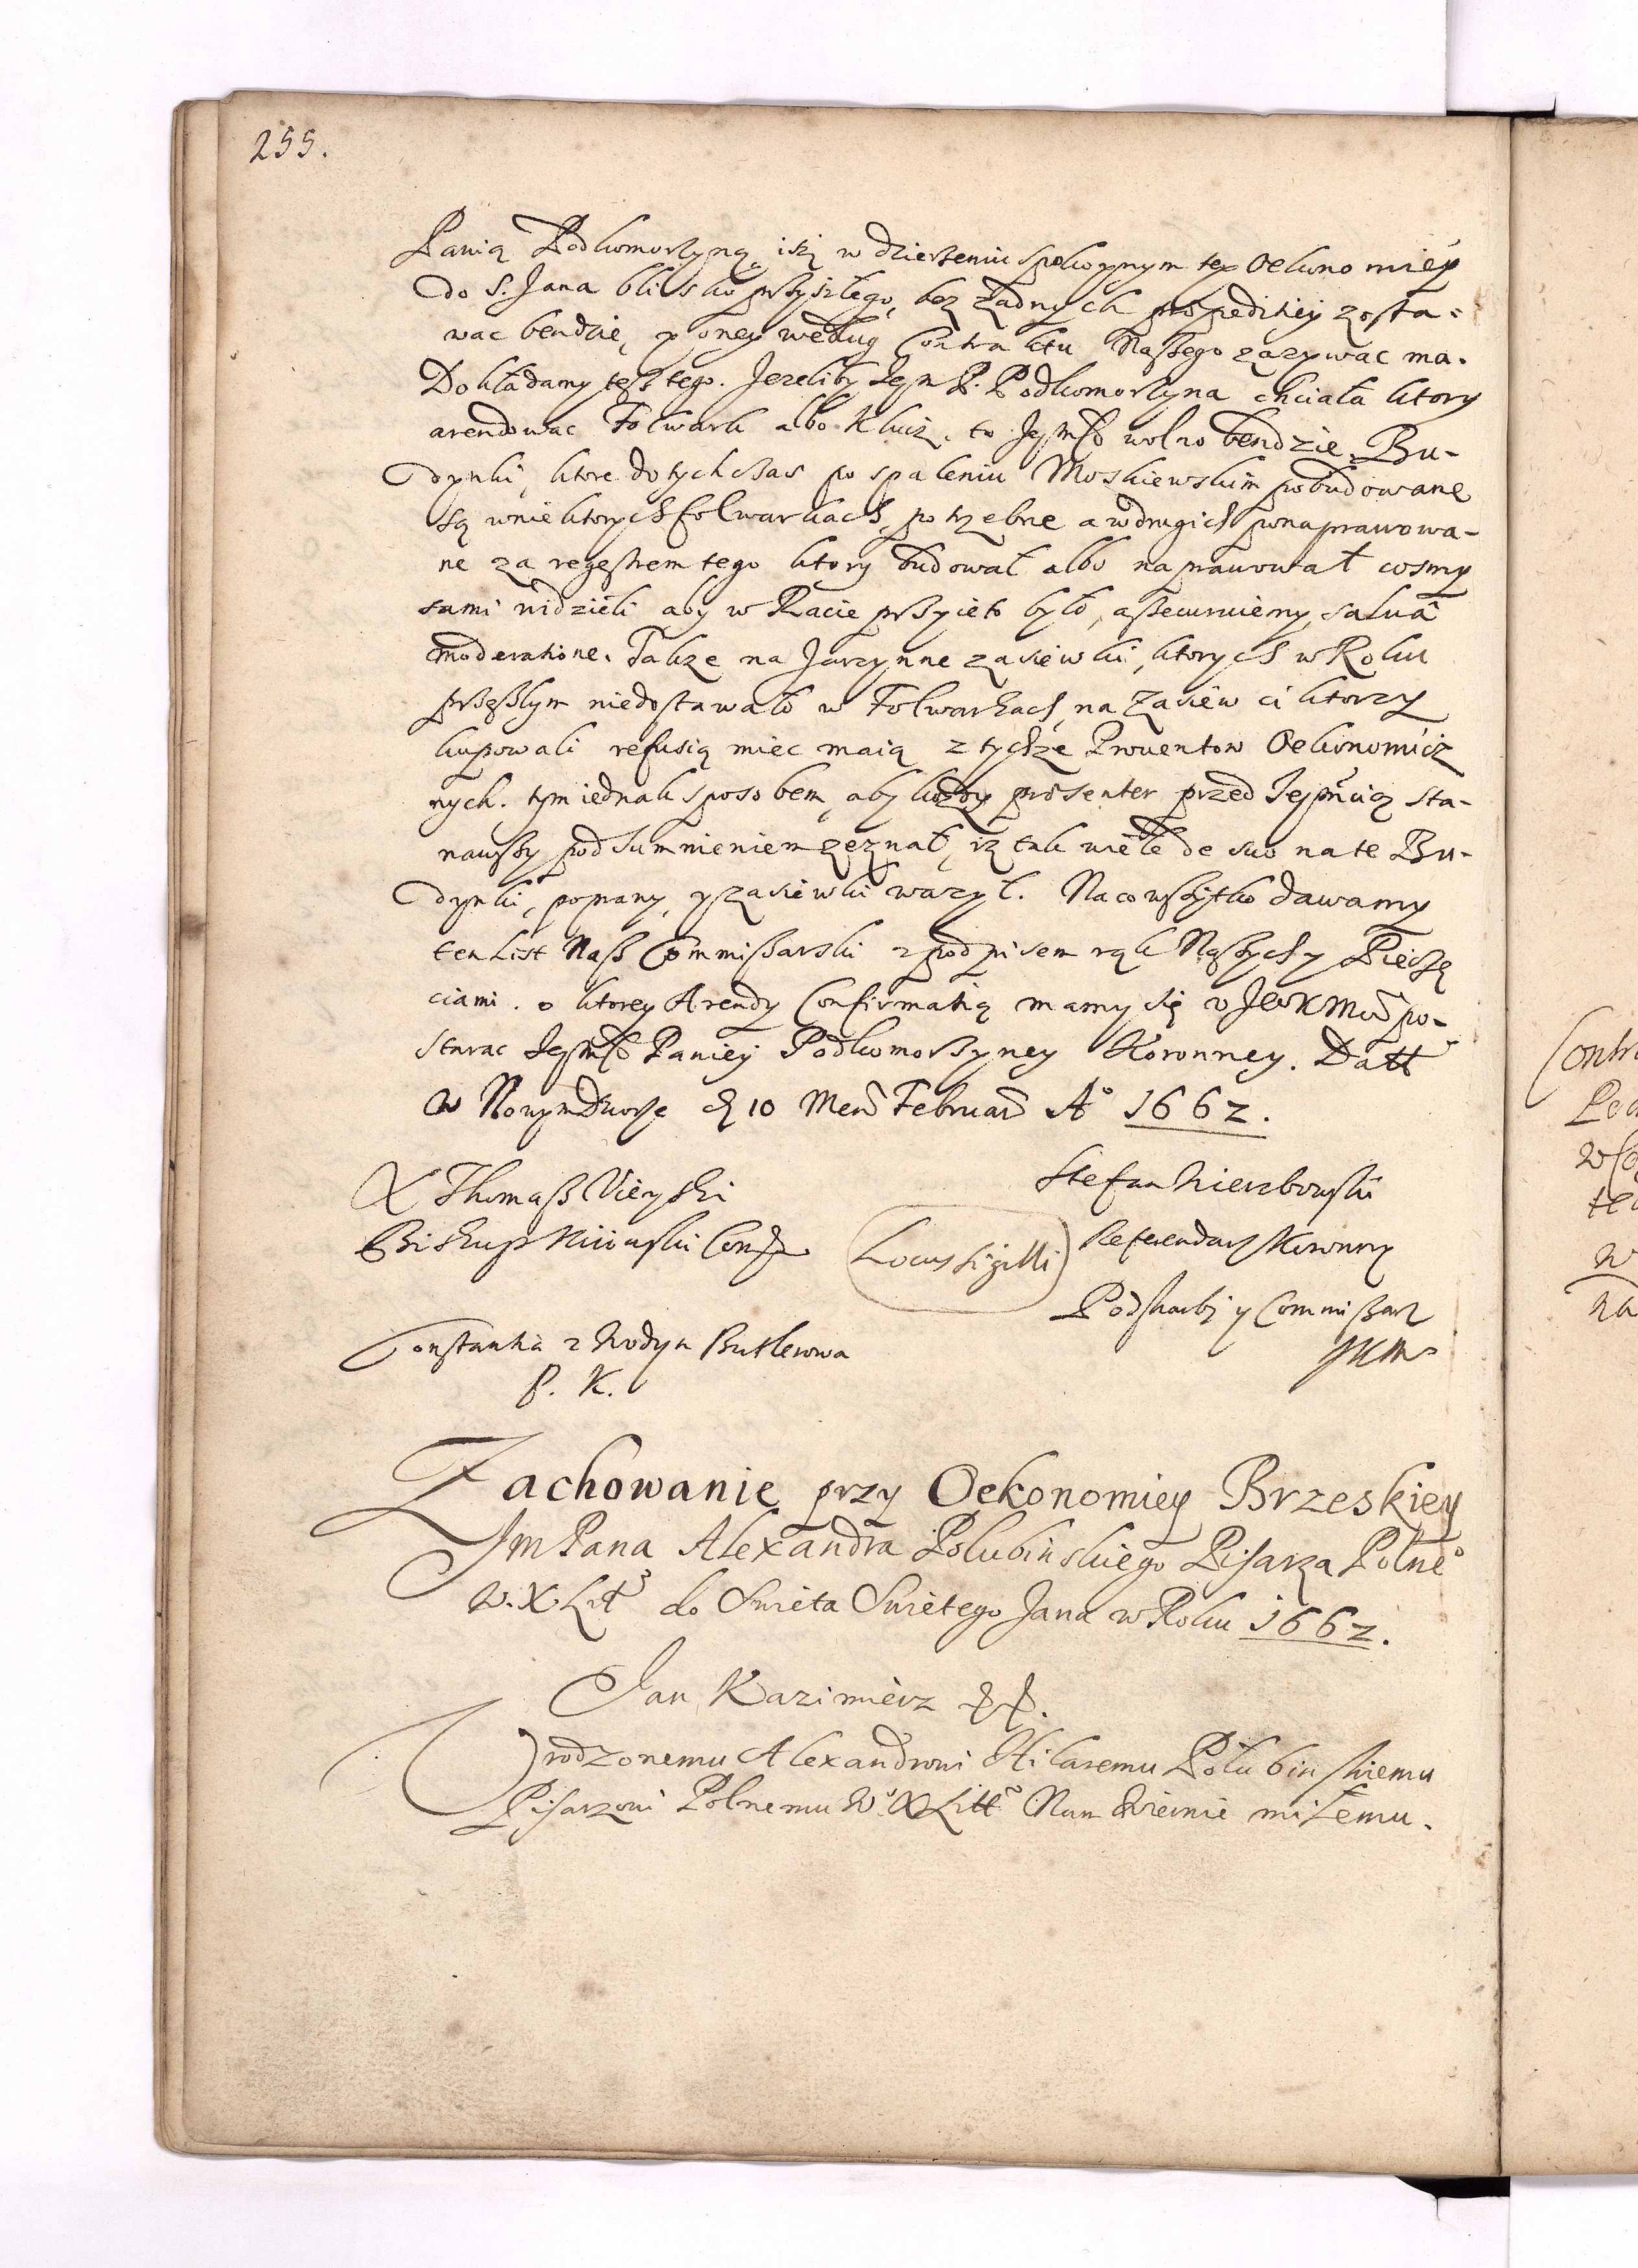 255.
Panią Podkomorzyną, isz w dzierzeniu spokoynym tey Oekonomiey
do S. Jana blisko przyszłego, bez żadnych przpeditiey zosta=
wac bendzie, y oney według Contraktu Naszego zazywac ma.
Dokładamy tesz tego. Jezeliby Jejm P. Podkomorzyna chciała ktory
arendowac Folwark albo Klucz, to Jejmsci wolno bendzie. Bu-
dynki, ktore dotychczas po spaleniu Moskiewskim pobudowane
są wniektorych folwarkach, potrzebne a wdrugich ponaprawowa-
ne za regestrem tego ktory budował albo naprawował cosmy
sami widzieli aby w Racie przyieto było, assecuruiemy, salua
moderatione. Takze na Jarzynne zasiewki, ktorych w Roku
przeszłym niedostawało w Folwarkach, na Zasiew ci ktorzy
kupowali refusią miec maią z tychże Prouentow Oekonomicz
nych. tym iednak sposobem, aby kozdy presenter przed Jejmcią sta-
nawszy pod sumnieniem zeznał, iz tak wiele de suo na te Bu-
dynki, poprawy, y zasiewki wazył. Na co wszytko dawamy
ten List Nasz Commissarski z podpisem rąk Naszych y Pieczę
ciami. o ktorey Arendy Confirmatią mamy się v JeoKMci po-
starac Jejmsci Paniey Podkomorzyney Koronney. Datt
w Nowym Dworze d 10 Men Februar A° 1662.
X Thomasz Vieyski
Biskup Kiiowski
Stefan Wierzbowski
Referendarz Koronny
Locus sigilli
Podskarbi y Commissarz
JKM
Constantia z Wodyn Butlerowa
P. K.
Zachowanie przy Oekonomiey Brzeskiey
Jm Pana Alexandra Połubinskiego Pisarza Polne°
W. X. Litt do Swieta Swietego Jana w Roku 1662.
Jan Kazimierz
Vrodzonemu Alexandrowi Hilaremu Połubinskiemu
Pisarzowi Polnemu W. X Litt Nam Wiernie miłemu.
Contr